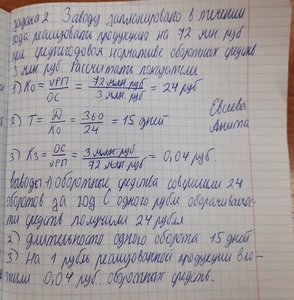 Задача 2. Заводу запланировано в течении
года реализовать продукцию на 72 млн руб
при среднегодовом нормативе оборотных средств
3 млн. руб. Рассчитать показатели
1) Ко = VРП/ОС = 72 млн руб/3 млн руб = 24 руб
Евсеева
2) Т = Д/Ко = 360/24 = 15 дней
Анита
3) Кз = ОС/VРП = 3 млн руб/72 млн руб = 0,04 руб.
Выводы 1) Оборотные средства совершили 24
оборотов за год С одного рубля оборачиваемос
ти средств получили 24 рубля
2) длительность одного оборота 15 дней
3) На 1 рубль реализованной продукции вло-
жили 0,04 руб. оборотных средств.